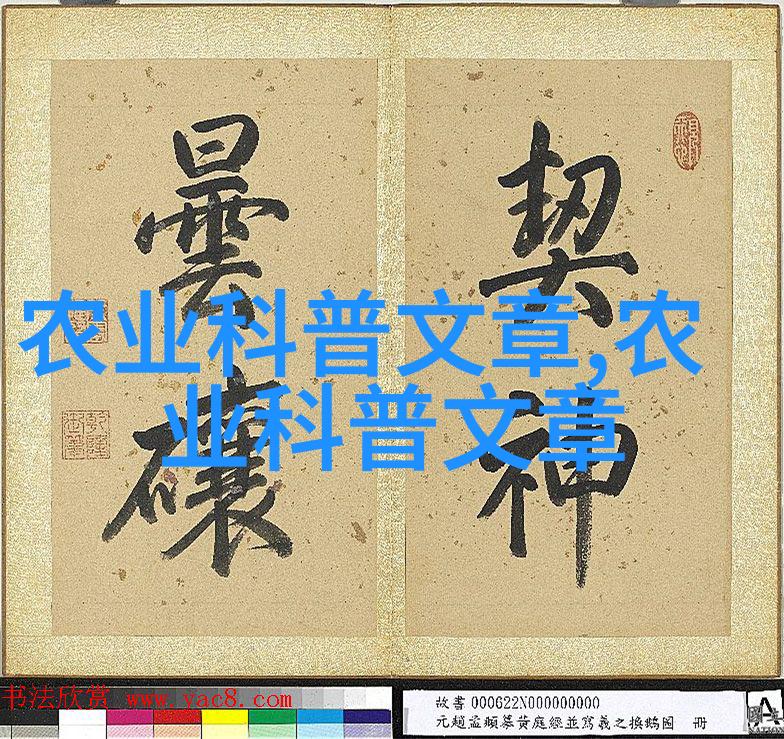 契神
曇
农业科普文章,农
业科普文章
书法欣赏 www.yac8.com
故書000622N000000000
元趙孟頫黃庭經並寫羲之換鵝圖 冊